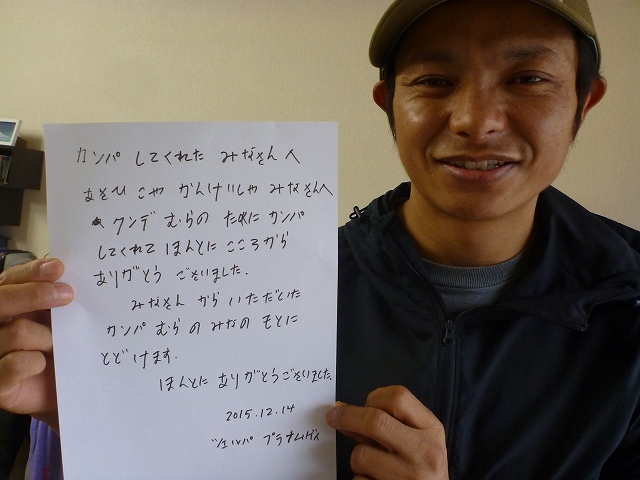 カンパ してくれた みなさん へ
あそび こや かんけいしゃ みなさんへ
クンデ むらの ために カンパ
してくれて ほんとに こころから
ありがとう ございました.
みなさん から いただいた
カンパ むら の みなの もとに
とどけます.
ほんとに ありがとうございました.
2015.12.14